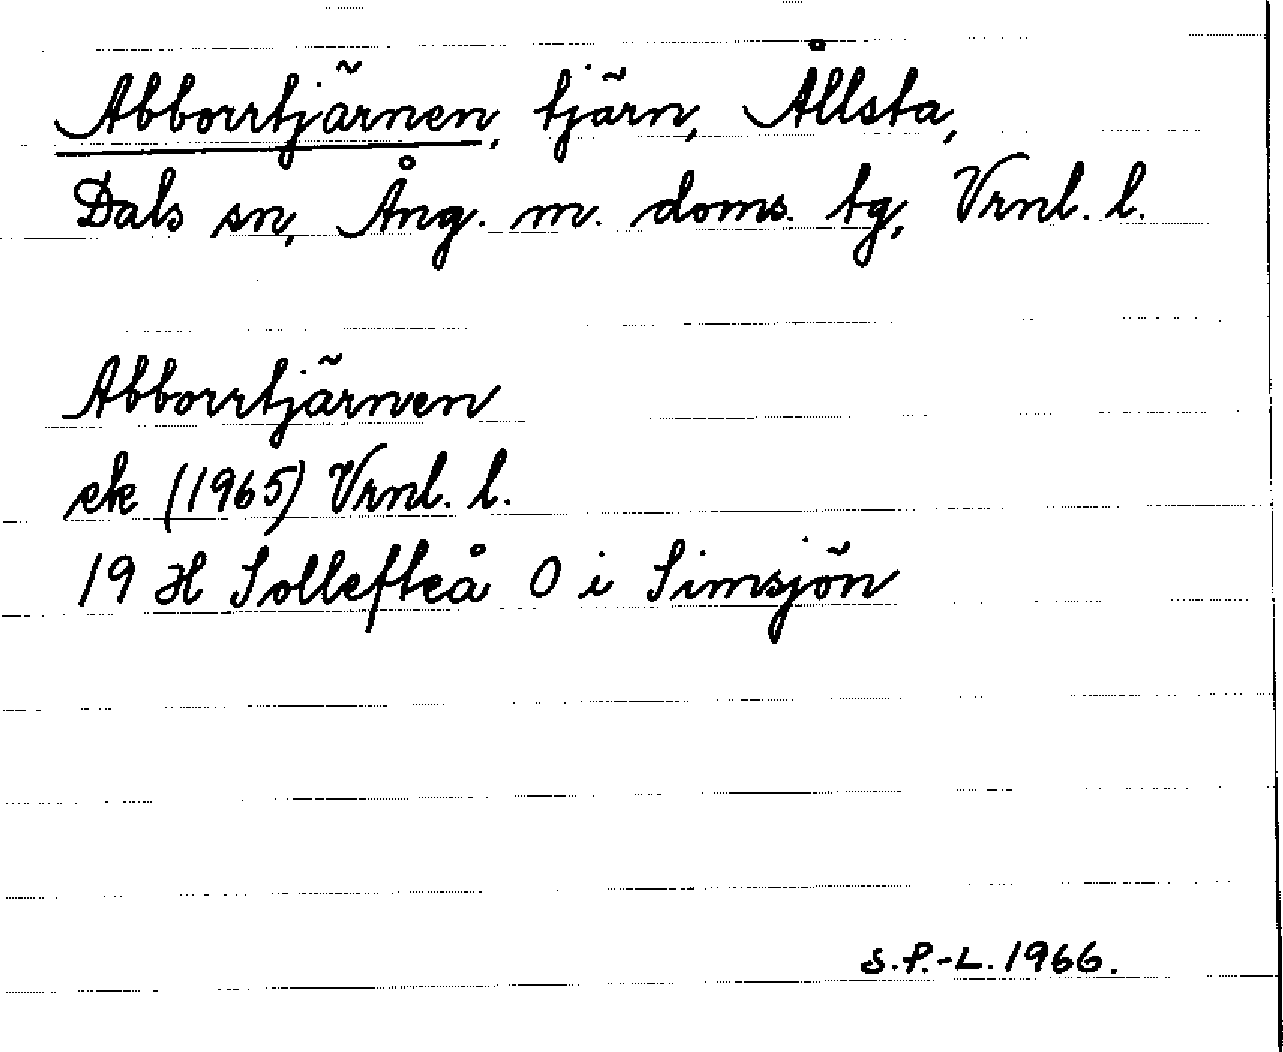 Abborrtjärnen, tjärn, Ållsta,
Dals sn, Ång. m. doms. tg, Vrnl. l.
Abborrtjärnen
ek (1965) Vrnl. l.
19 H Sollefteå O i Simsjön
S.P.-L. 1966.